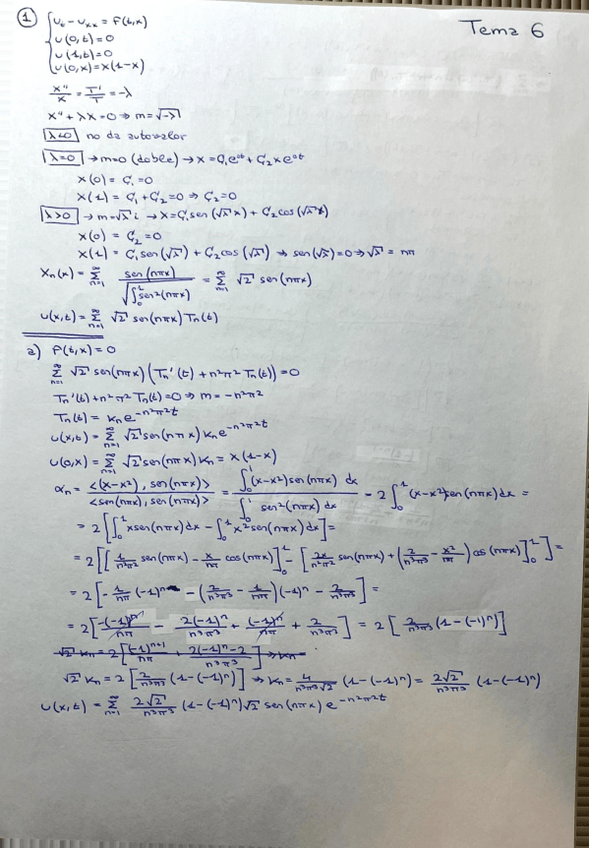 Tema 6
① { u_t - u_xx = F(t,x)
u(0,t) = 0
u(1,t) = 0
u(0,x) = x(1-x)
X''/X = T'/T = -λ
X'' + λX = 0 ⇒ m = √-λ
λ<0 no da autovalor
λ=0 → m=0 (doble) → X = C₁e^{0x} + C₂xe^{0x}
X(0) = C₁ = 0
X(1) = C₁ + C₂ = 0 ⇒ C₂ = 0
λ>0 → m = √λ i → X = C₁sen(√λ x) + C₂cos(√λ x)
X(0) = C₂ = 0
X(1) = C₁sen(√λ) + C₂cos(√λ) → sen(√λ) = 0 → √λ = nπ
X_n(x) = Σ_{n=1}^∞ sen(nπx)/√(∫₀¹ sen²(nπx)) = Σ_{n=1}^∞ √2 sen(nπx)
u(x,t) = Σ_{n=1}^∞ √2 sen(nπx) T_n(t)
a) F(t,x) = 0
Σ_{n=1}^∞ √2 sen(nπx)(T_n'(t) + n²π²T_n(t)) = 0
T_n'(t) + n²π²T_n(t) = 0 ⇒ m = -n²π²
T_n(t) = K_n e^{-n²π²t}
u(x,t) = Σ_{n=1}^∞ √2 sen(nπx) K_n e^{-n²π²t}
u(0,x) = Σ_{n=1}^∞ √2 sen(nπx) K_n = x(1-x)
α_n = <(x-x²), sen(nπx)>/<sen(nπx), sen(nπx)> = ∫₀¹(x-x²)sen(nπx) dx/∫₀¹ sen²(nπx) dx = 2∫₀¹(x-x²)sen(nπx)dx =
= 2[∫₀¹ xsen(nπx)dx - ∫₀¹ x²sen(nπx)dx] =
= 2[[1/n²π² sen(nπx) - x/nπ cos(nπx)]₀¹ - [2x/n²π² sen(nπx) + (2/n³π³ - x²/nπ) cos(nπx)]₀¹] =
= 2[-1/nπ (-1)ⁿ - (2/n³π³ - 1/nπ)(-1)ⁿ - 2/n³π³] =
= 2[-(-1)ⁿ/nπ - 2(-1)ⁿ/n³π³ + (-1)ⁿ/nπ + 2/n³π³] = 2[2/n³π³ (1-(-1)ⁿ)]
√2 K_n = 2[(-1)ⁿ⁺¹/nπ + 2(-1)ⁿ-2/n³π³] ⇒ K_n =
√2 K_n = 2[2/n³π³ (1-(-1)ⁿ)] → K_n = 4/n³π³√2 (1-(-1)ⁿ) = 2√2/n³π³ (1-(-1)ⁿ)
u(x,t) = Σ_{n=1}^∞ 2√2/n³π³ (1-(-1)ⁿ)√2 sen(nπx) e^{-n²π²t}